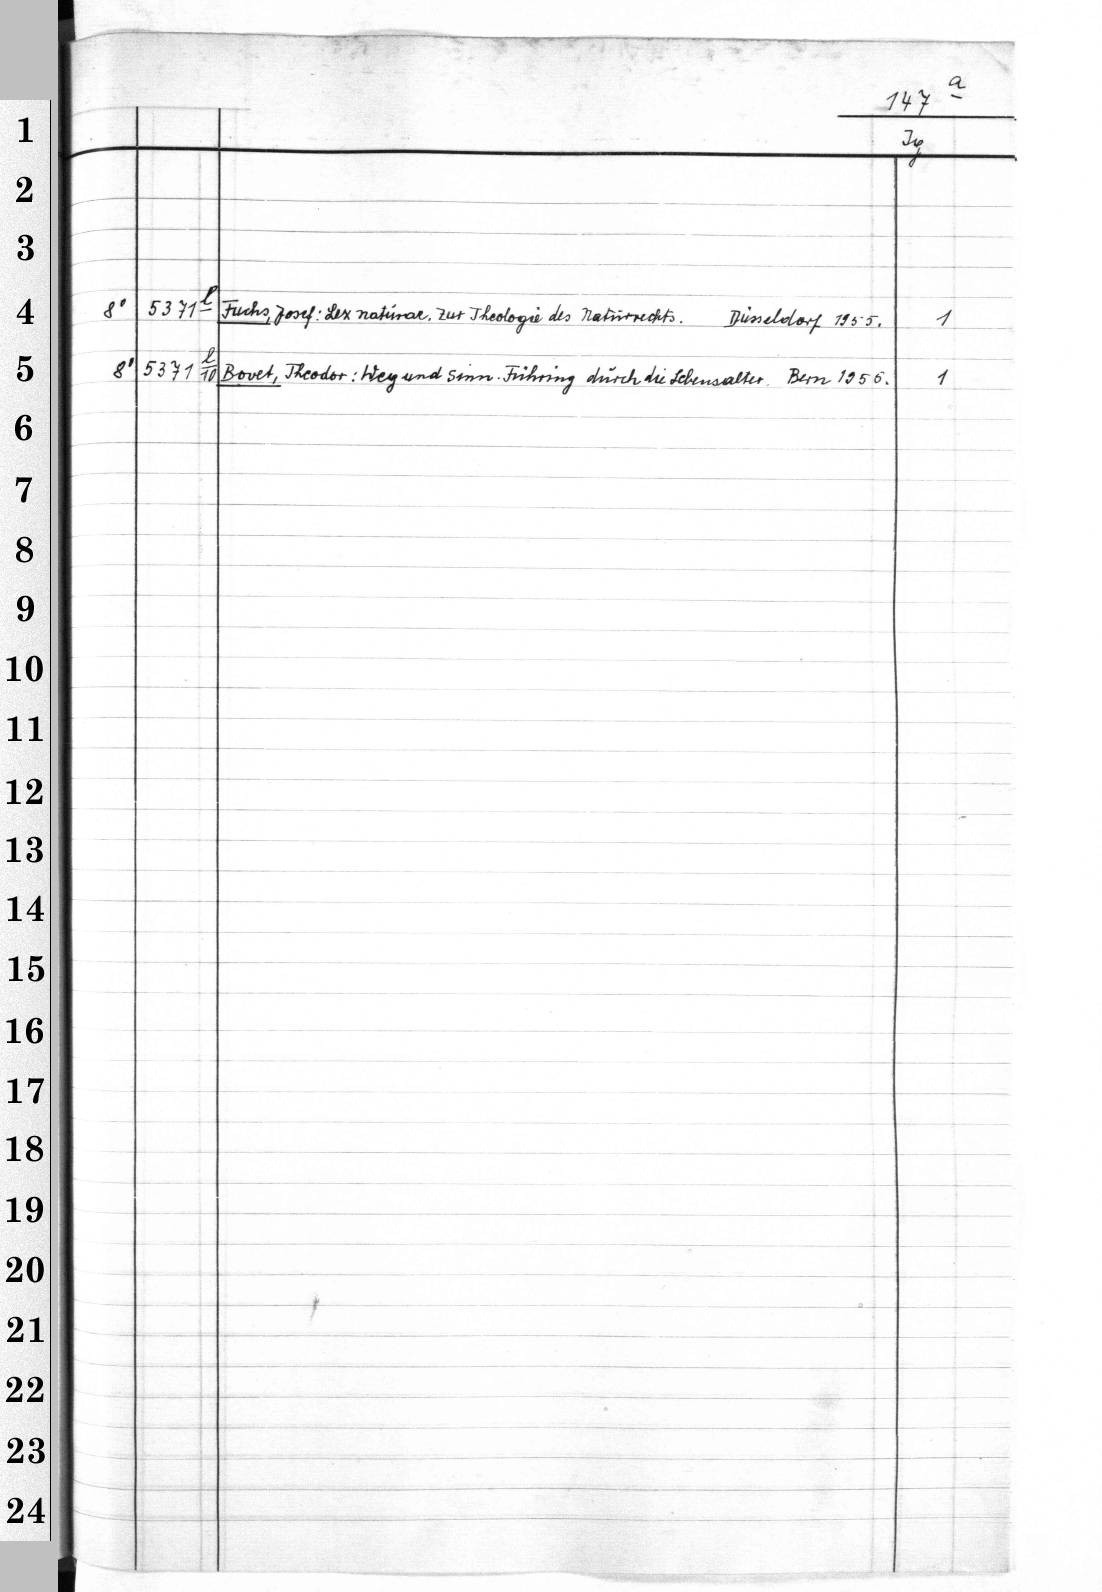 147 a
Ig
1
2
3
4 8° 5371 l Fuchs, Josef: Lex naturae. Zur Theologie des Naturrechts. Düsseldorf 1955. 1
5 8° 5371 l/10 Bovet, Theodor: Weg und Sinn. Führung durch die Lebensalter. Bern 1956. 1
6
7
8
9
10
11
12
13
14
15
16
17
18
19
20
21
22
23
24